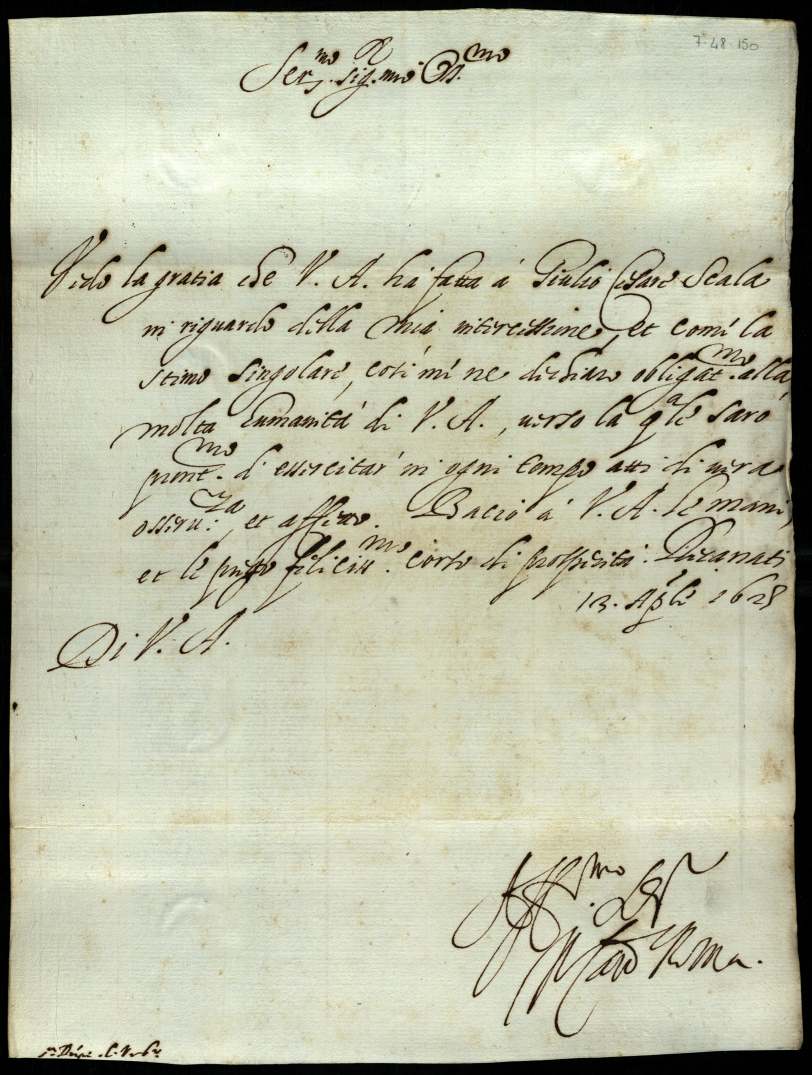 7-48-150
Ser.mo Sig.r mio Oss.mo
Vedo la gratia che V. A. ha fatta à Giulio Cesare Scala
in riguardo della mia intercessione, et come la
stimo singolare, così me ne dichiaro obligat.mo alla
molta humanità di V. A., verso la q.ale sarò
pront.mo d'essercitar' in ogni tempo atti di vera
osseru.za, et affetto. Bacio à V. A. le mani,
et le prego feliciss.mo corso di prosperità. Ricanati
13. Ap.le 1628
Di V. A.
Aff.mo Ser.
Il Card Roma.